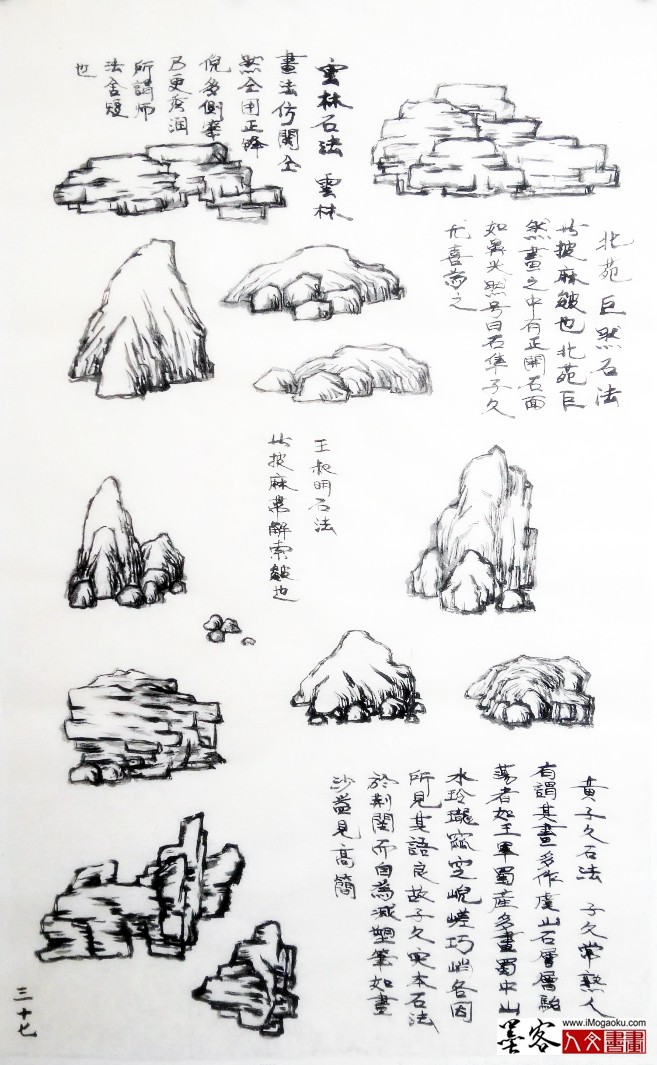 雲林石法 雲林
畫法仿關仝
然仝用正峰
倪多側峯
乃更秀润
所謂师
法舍短
也
北苑巨然石法
此披麻皴也北苑巨
然畫之中有正開石面
如鼻头然号曰石隼子久
尤喜为之
王叔明石法
此披麻帶解索皴也
黄子久石法 子久常熟人
有謂其畫多作虞山石層層駘
蕩者如王軍蜀產多畫蜀中山
水玲瓏窳空峴嵯巧峭各因
所見其語良故子久原本石法
於荆關而自为减塑筆如畫
沙益見高簡
三十七
www.iMogaoku.com
墨客
人文書畫